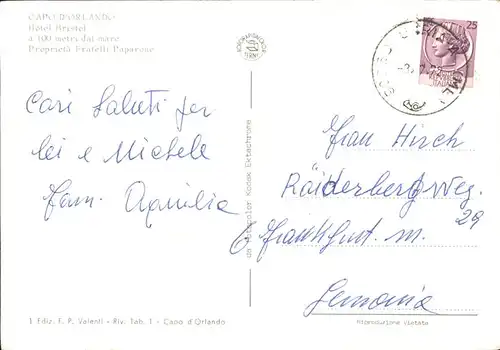 CAPO D'ORLANDO
Hotel Bristol
a 100 metri dal mare
Proprietà Fratelli Paparone
25
Cari Saluti per
lei e Michele
Fam. Aquilia
un Autocolor Kodak Ektachrome
Frau Hirch
Räiderberg Weg.
29
6 Frankfurt. M.
Germania
1 Ediz. F. P. Valenti - Riv. Tab. 1 - Capo d'Orlando
Riproduzione Vietata